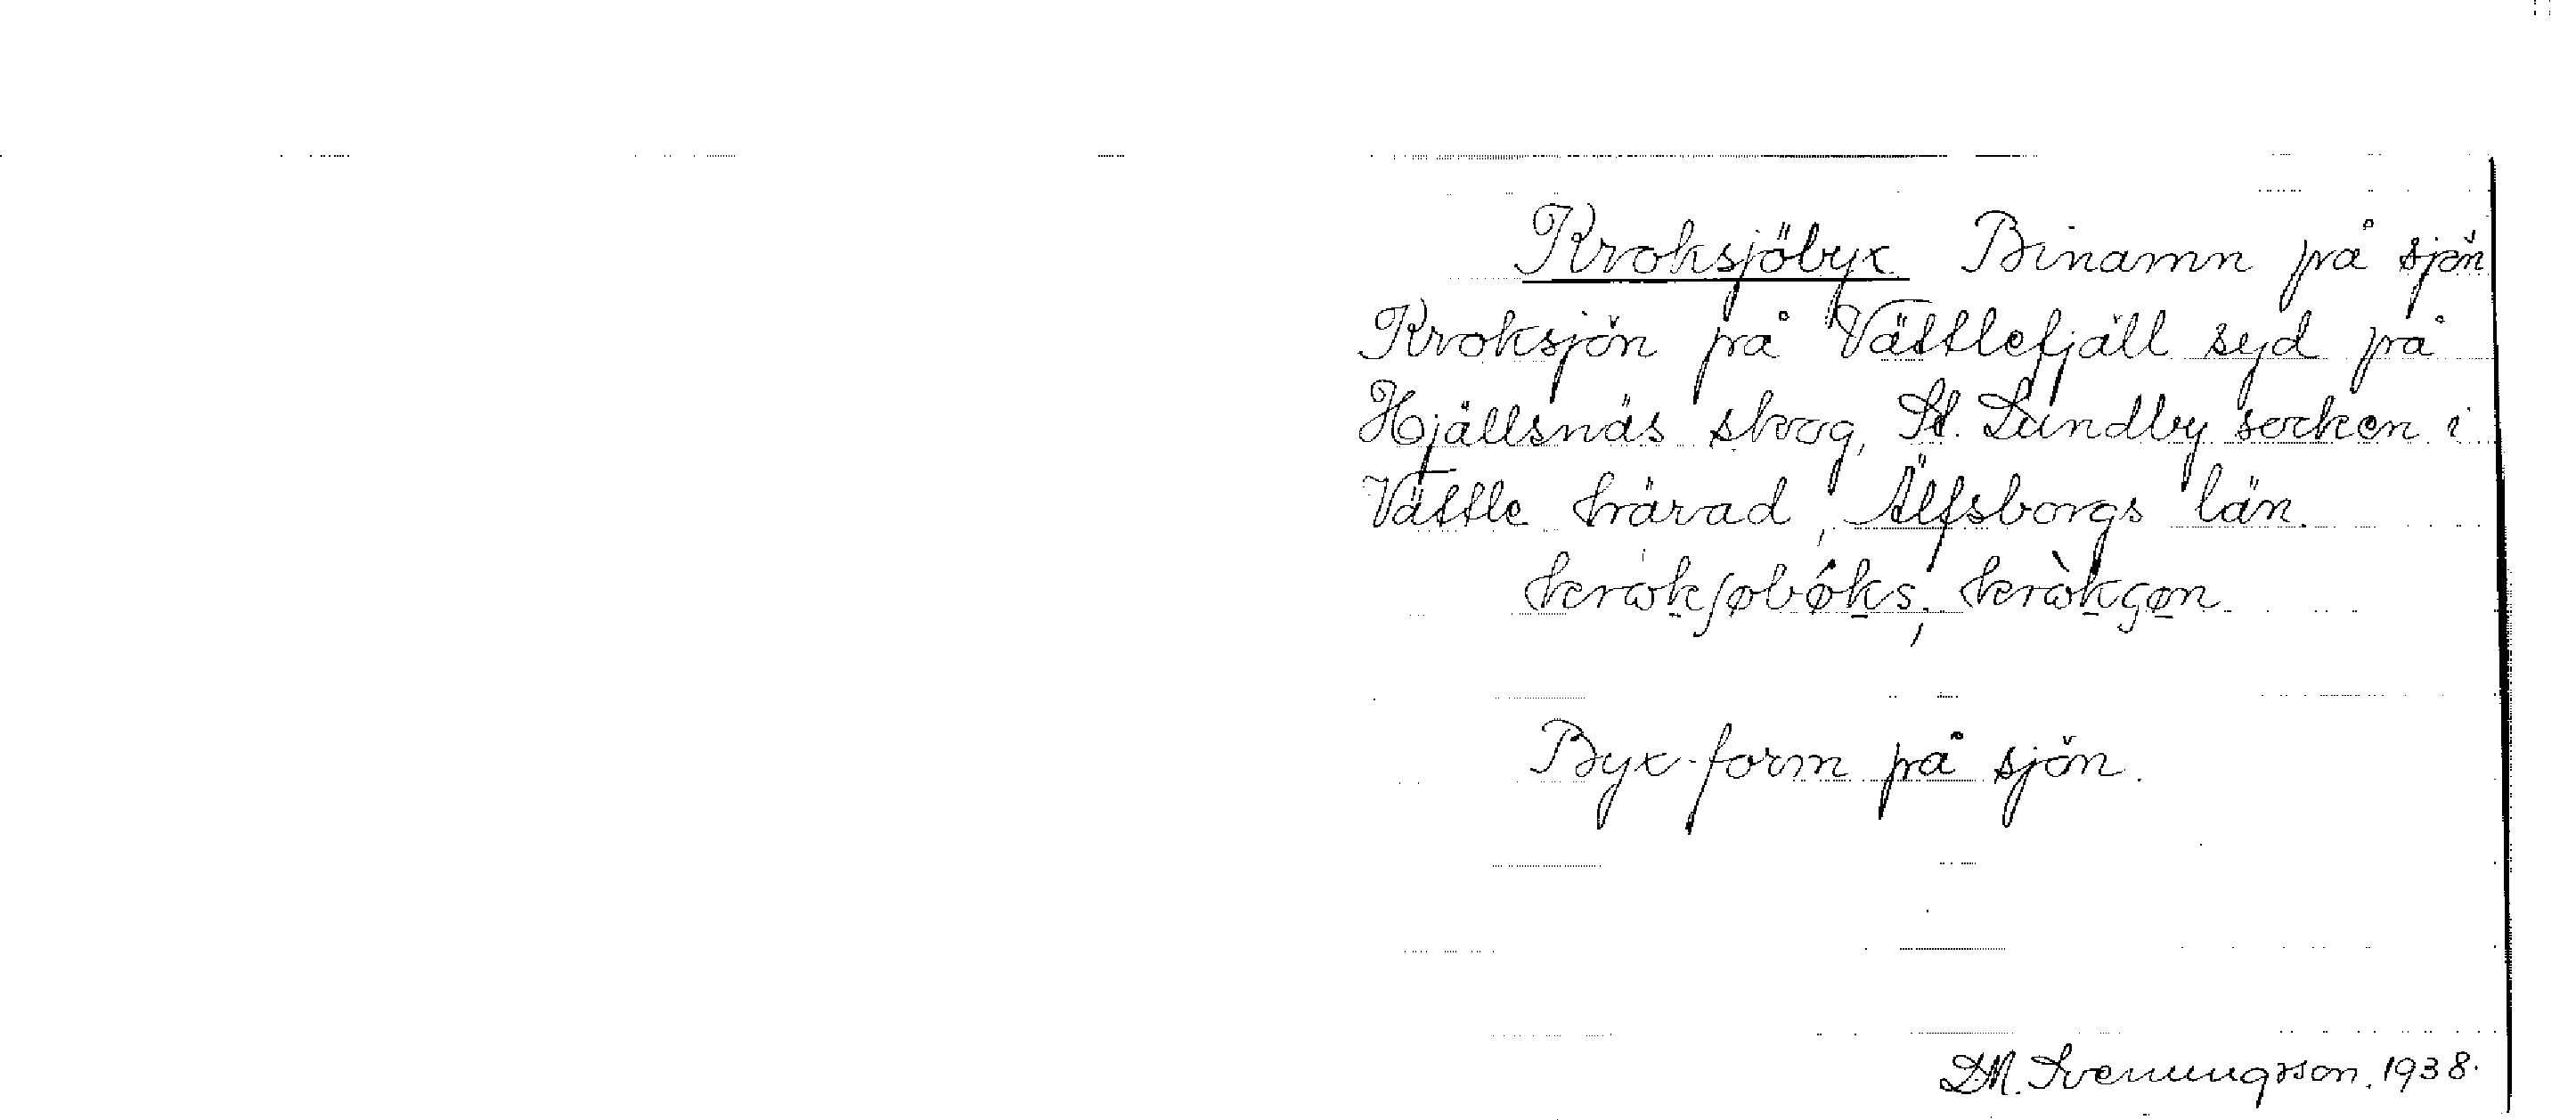 Kroksjöbyx. Binamn på sjön
Kroksjön på Vättlefjäll syd på
Hjällsnäs skog, St. Lundby socken i
Vättle härad, Älfsborgs län.
krωkʃøbøks, krωkgøn.
Byx-form på sjön.
D.M. Svenungsson. 1938.